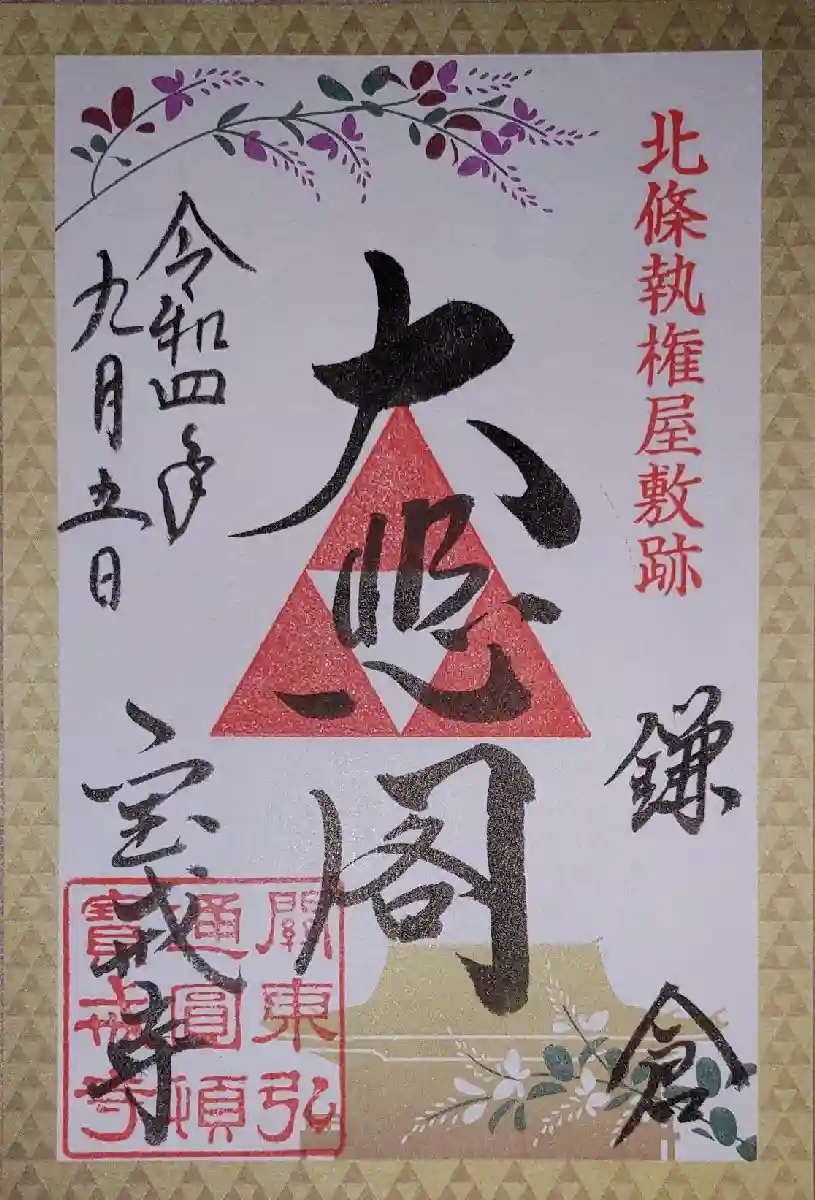 北條執権屋敷跡
鎌倉
大悲閣
令和四年
九月五日
宝戒寺
關東弘
通圓頓
寶戒寺